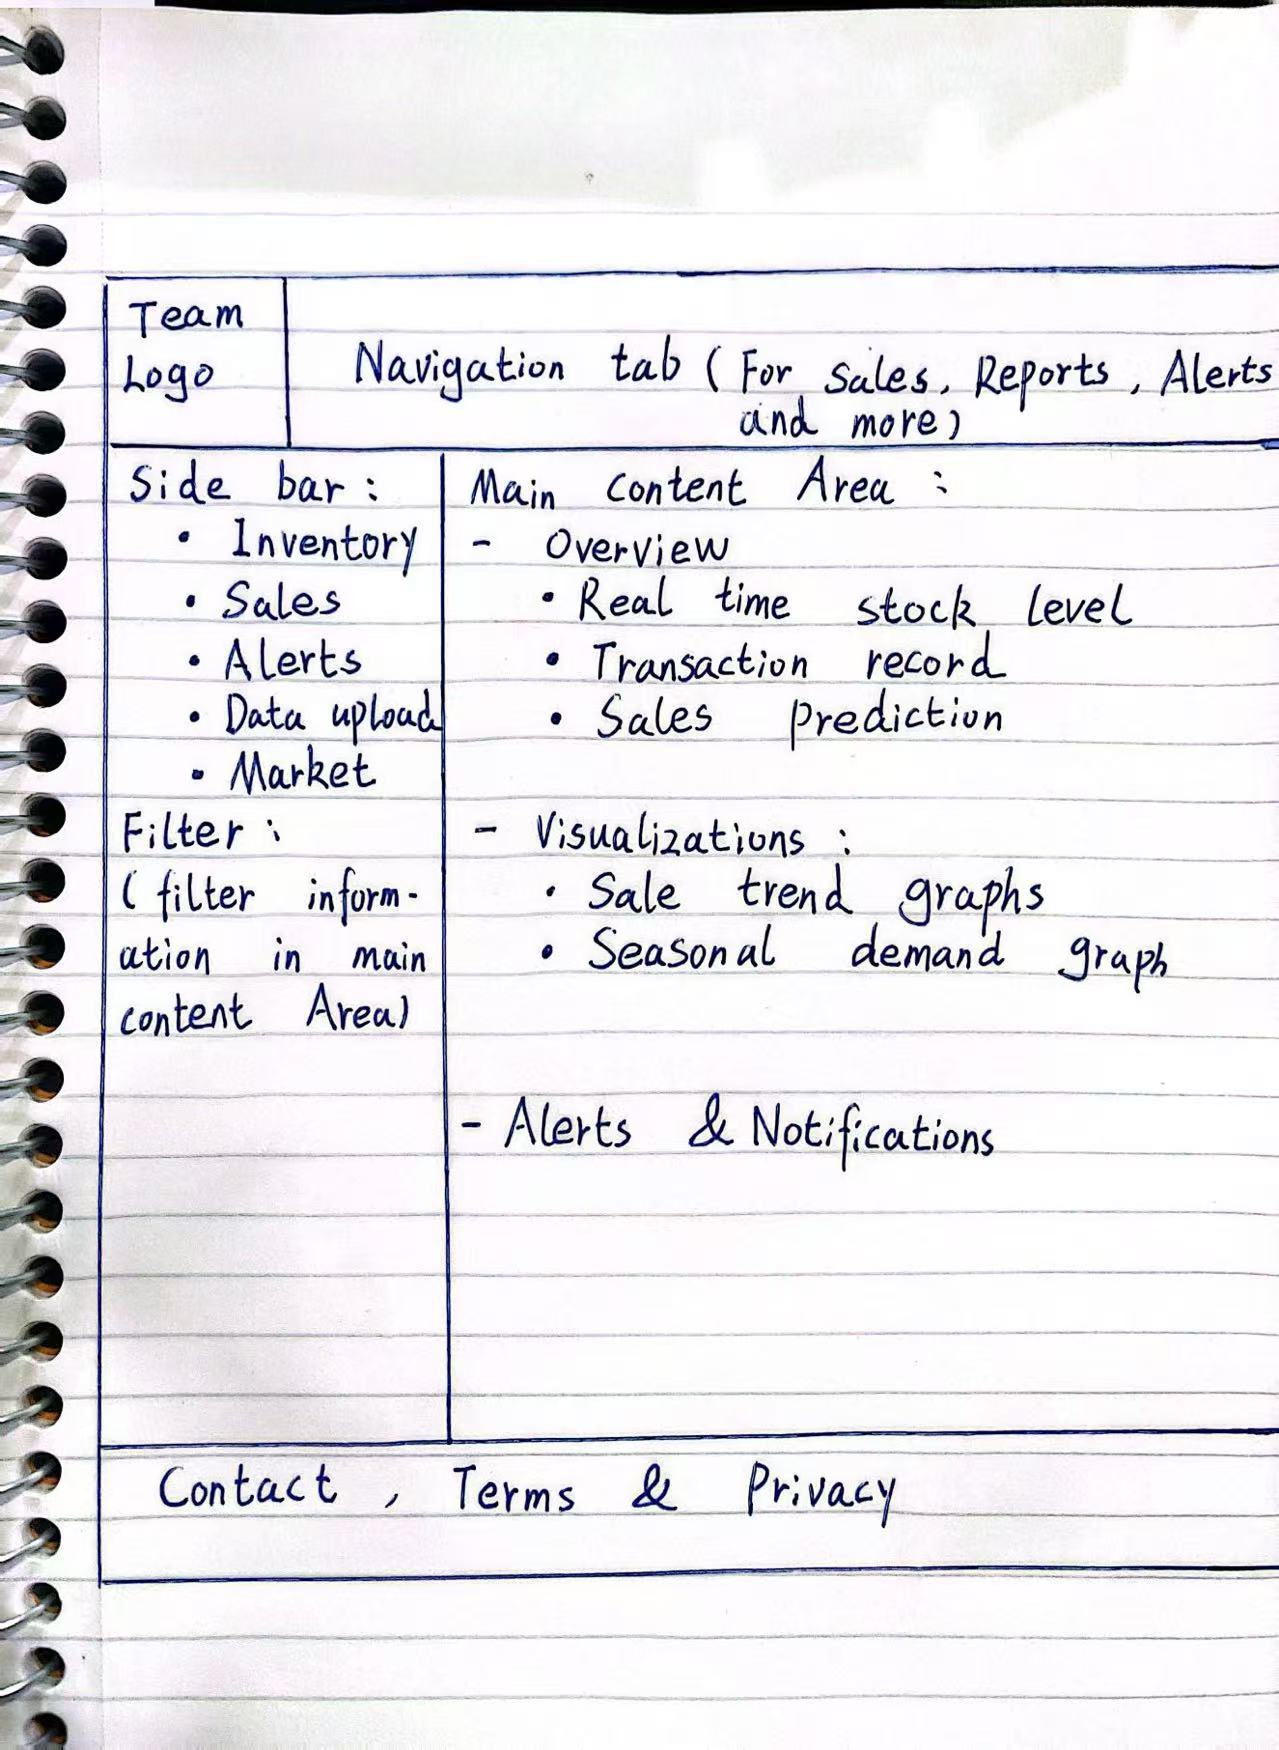 Team
Logo
Navigation tab (For Sales, Reports, Alerts
and more)
Side bar:
• Inventory
• Sales
• Alerts
• Data upload
• Market
Filter:
(filter inform-
ation in main
content Area)
Main content Area:
- Overview
• Real time stock level
• Transaction record
• Sales prediction
- Visualizations:
• Sale trend graphs
• Seasonal demand graph
- Alerts & Notifications
Contact, Terms & Privacy